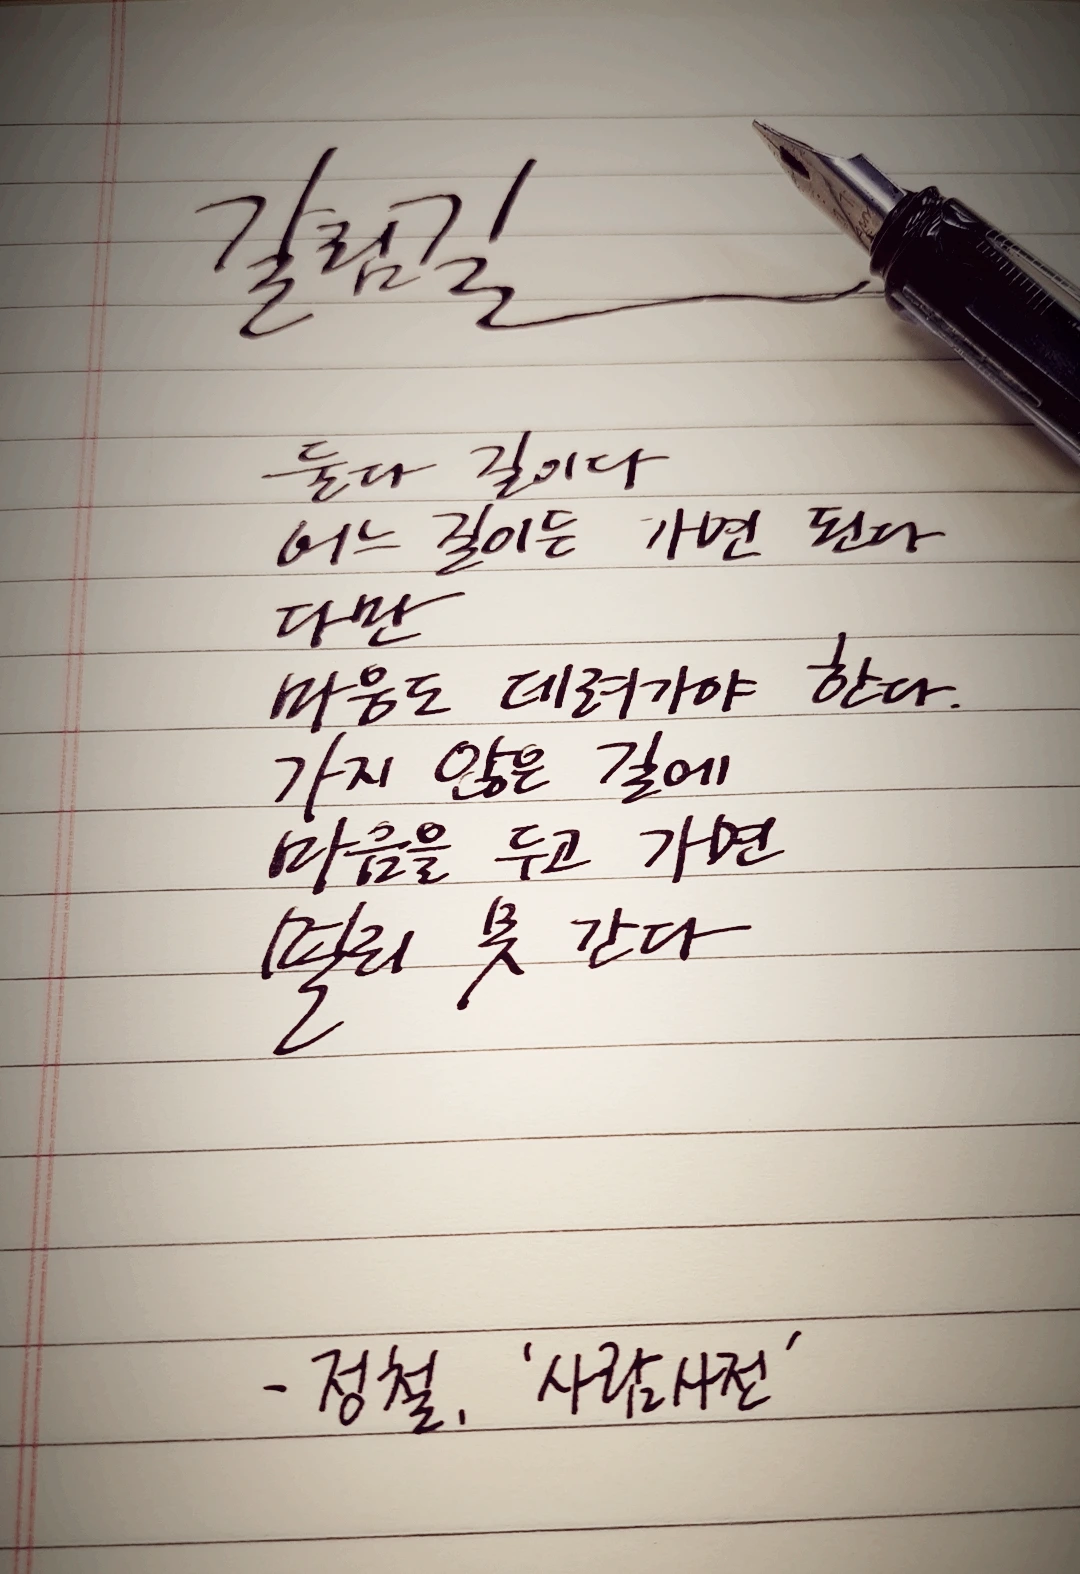 갈림길
둘다 길이다
어느 길이든 가면 된다
다만
마음도 데려가야 한다.
가지 않은 길에
마음을 두고 가면
멀리 못 간다
- 정철, '사람사전'